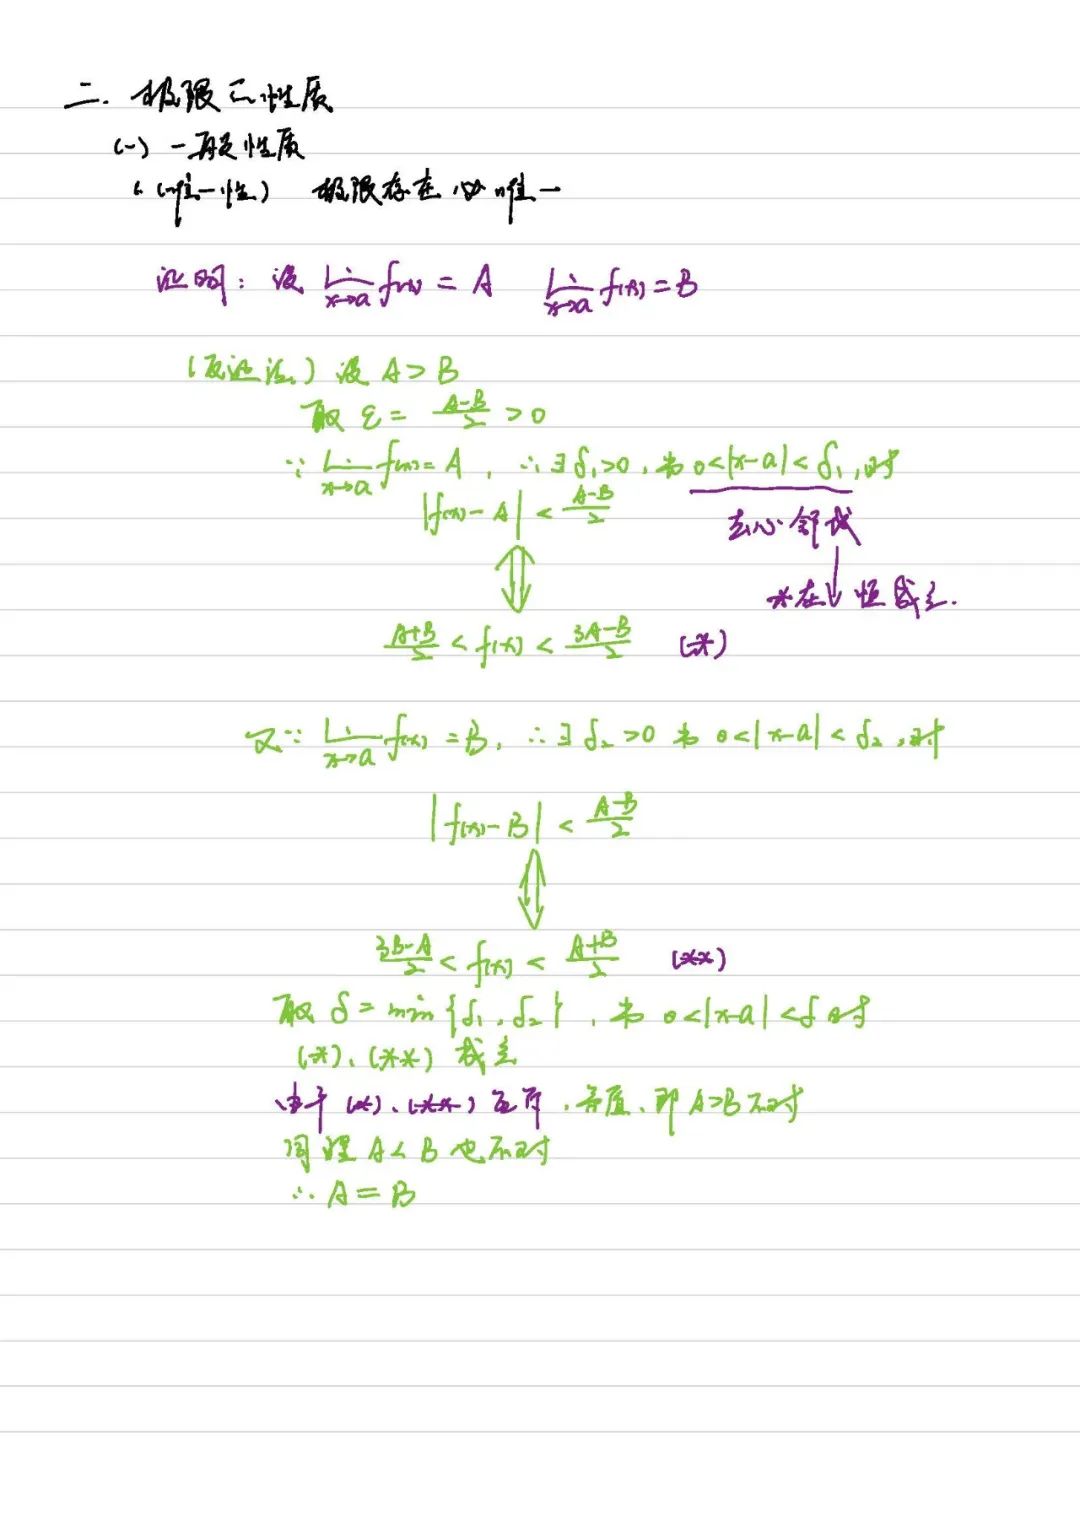 二. 极限之性质
(一) 一般性质
1. (唯一性) 极限存在必唯一
证明: 设 lim x→a f(x) = A lim x→a f(x) = B
(反证法) 设 A > B
取 ε = (A-B)/2 > 0
∵ lim x→a f(x) = A, ∴ ∃ δ₁>0, 当 0<|x-a|<δ₁, 时
|f(x) - A| < (A-B)/2
去心邻域
*在 恒成立.
⇕
(A+B)/2 < f(x) < (3A-B)/2 (*)
又∵ lim x→a f(x) = B, ∴ ∃ δ₂ >0 当 0<|x-a|<δ₂, 时
|f(x) - B| < (A-B)/2
⇕
(3B-A)/2 < f(x) < (A+B)/2 (**)
取 δ = min {δ₁, δ₂}, 当 0<|x-a|<δ 时
(*)、(**) 成立
由于 (*)、(**) 矛盾、即 A>B 不对
同理 A < B 也不对
∴ A = B